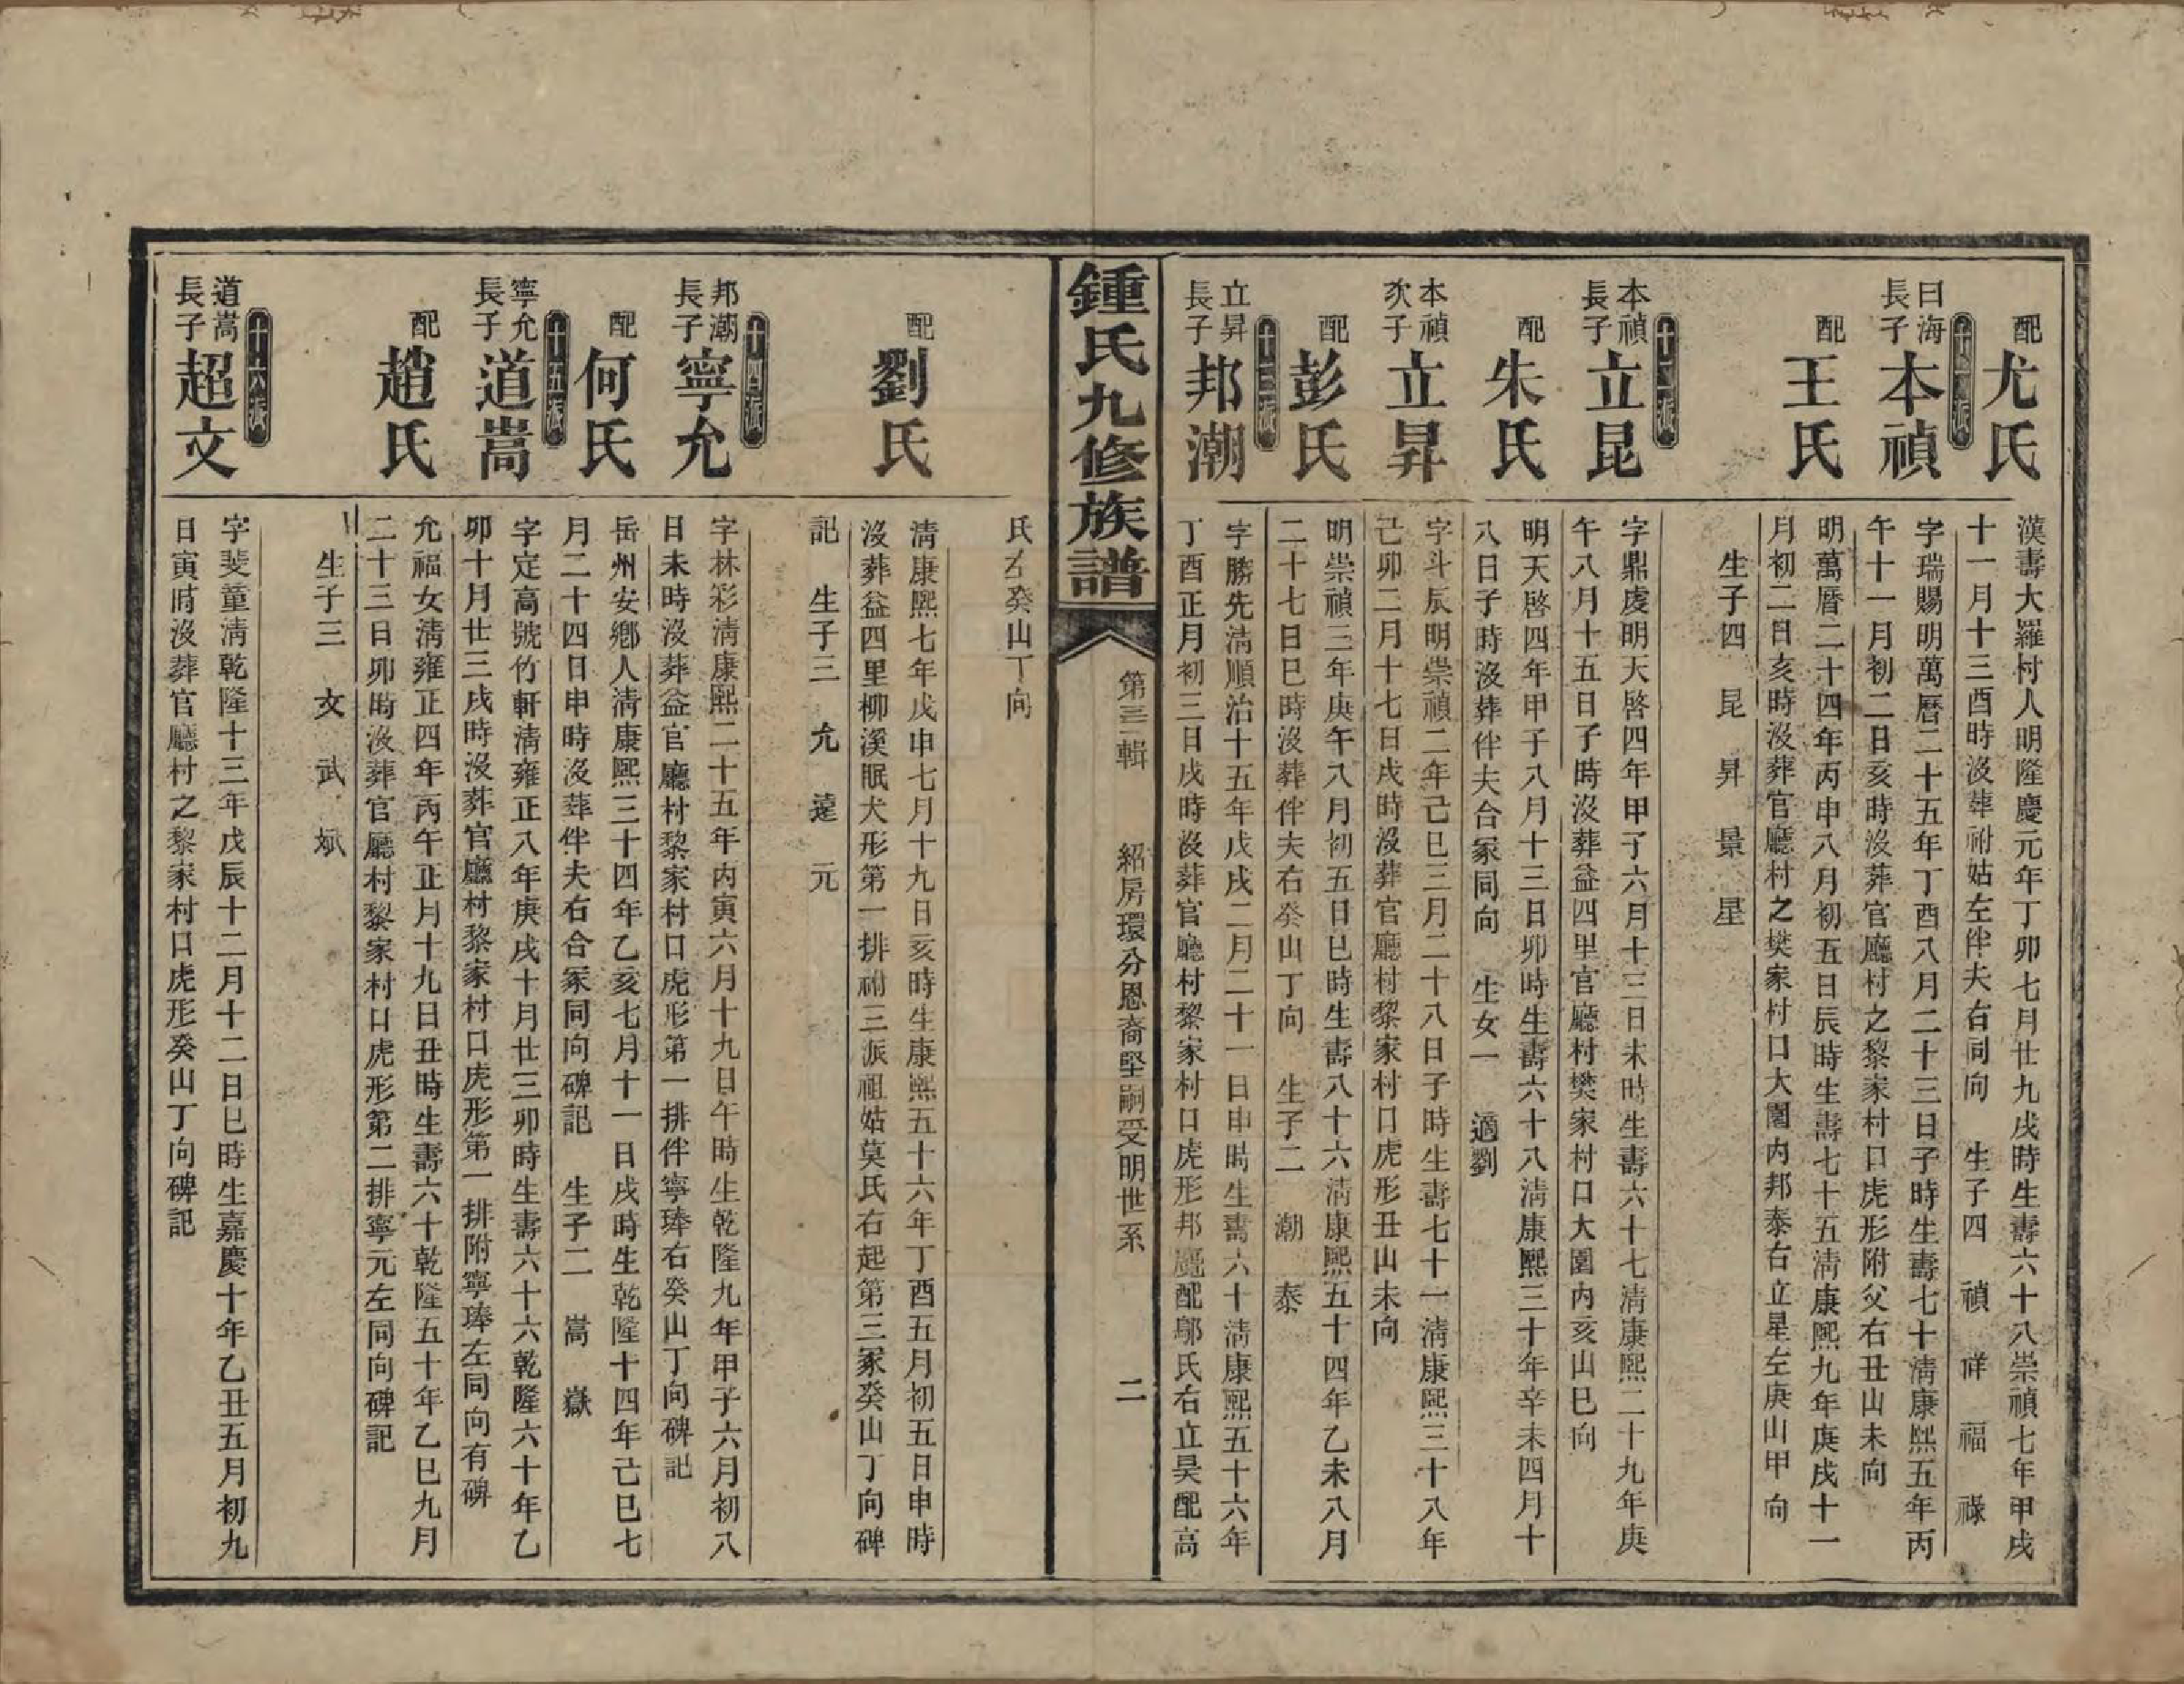 配
尤氏
漢壽大羅村人明隆慶元年丁卯七月廿九戌時生壽六十八崇禎七年甲戌
十一月十三酉時沒葬祔姑左伴夫右同向　生子四　禎　祥　福　祿
曰海
長子
本禎
字瑞賜明萬曆二十五年丁酉八月二十三日子時生壽七十清康熙五年丙
午十一月初二日亥時沒葬官廳村之黎家村口虎形附父右丑山未向
配
王氏
明萬曆二十四年丙申八月初五日辰時生壽七十五清康熙九年庚戌十一
月初二日亥時沒葬官廳村之樊家村口大園內邦泰右立星左庚山甲向
生子四　昆　昇　景　星
十二派
本禎
長子
立昆
字鼎虔明天啓四年甲子六月十三日未時生壽六十七清康熙二十九年庚
午八月十五日子時沒葬益四里官廳村樊家村口大園內亥山巳向
配
朱氏
明天啓四年甲子八月十三日卯時生壽六十八清康熙三十年辛未四月十
八日子時沒葬伴夫合冢同向　生女一　適劉
本禎
次子
立昇
字斗辰明崇禎二年己巳三月二十八日子時生壽七十一清康熙三十八年
己卯二月十七日戌時沒葬官廳村黎家村口虎形丑山未向
配
彭氏
明崇禎三年庚午八月初五日巳時生壽八十六清康熙五十四年乙未八月
二十七日巳時沒葬伴夫右癸山丁向　生子二　潮　泰
十三派
立昇
長子
邦潮
字勝先清順治十五年戊戌二月二十一日申時生壽六十清康熙五十六年
丁酉正月初三日戌時沒葬官廳村黎家村口虎形邦颺配鄔氏右立昊配高
鍾氏九修族譜
第三輯
紹房環分恩裔堅嗣受明世系
二
氏左癸山丁向
配
劉氏
清康熙七年戊申七月十九日亥時生康熙五十六年丁酉五月初五日申時
沒葬益四里柳溪眠犬形第一排祔三派祖姑莫氏右起第三冢癸山丁向碑
記　生子三　允　達　元
十四派
邦潮
長子
寧允
字林彩清康熙二十五年丙寅六月十九日午時生乾隆九年甲子六月初八
日未時沒葬益官廳村黎家村口虎形第一排伴寧琫右癸山丁向碑記
配
何氏
岳州安鄉人清康熙三十四年乙亥七月十一日戌時生乾隆十四年己巳七
月二十四日申時沒葬伴夫右合冢同向碑記　生子二　嵩　嶽
十五派
寧允
長子
道嵩
字定高號竹軒清雍正八年庚戌十月廿三卯時生壽六十六乾隆六十年乙
卯十月廿三戌時沒葬官廳村黎家村口虎形第一排附寧琫左同向有碑
配
趙氏
允福女清雍正四年丙午正月十九日丑時生壽六十乾隆五十年乙巳九月
二十三日卯時沒葬官廳村黎家村口虎形第二排寧元左同向碑記
生子三　文　武　斌
十六派
道嵩
長子
超文
字斐童清乾隆十三年戊辰十二月十二日巳時生嘉慶十年乙丑五月初九
日寅時沒葬官廳村之黎家村口虎形癸山丁向碑記